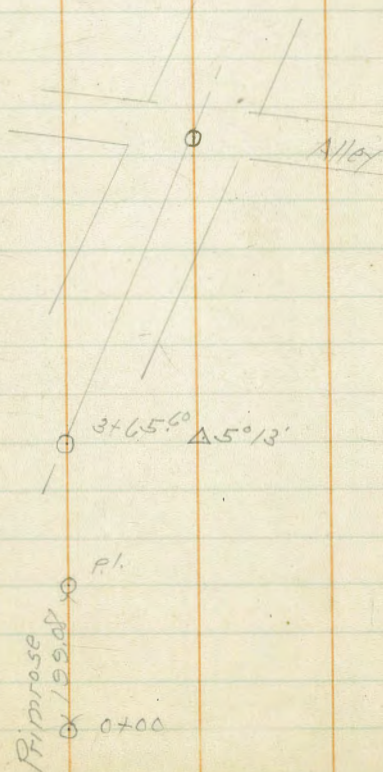 Alley
3+65.60 Δ5°13'
P.I.
Primrose
199.08
0+00